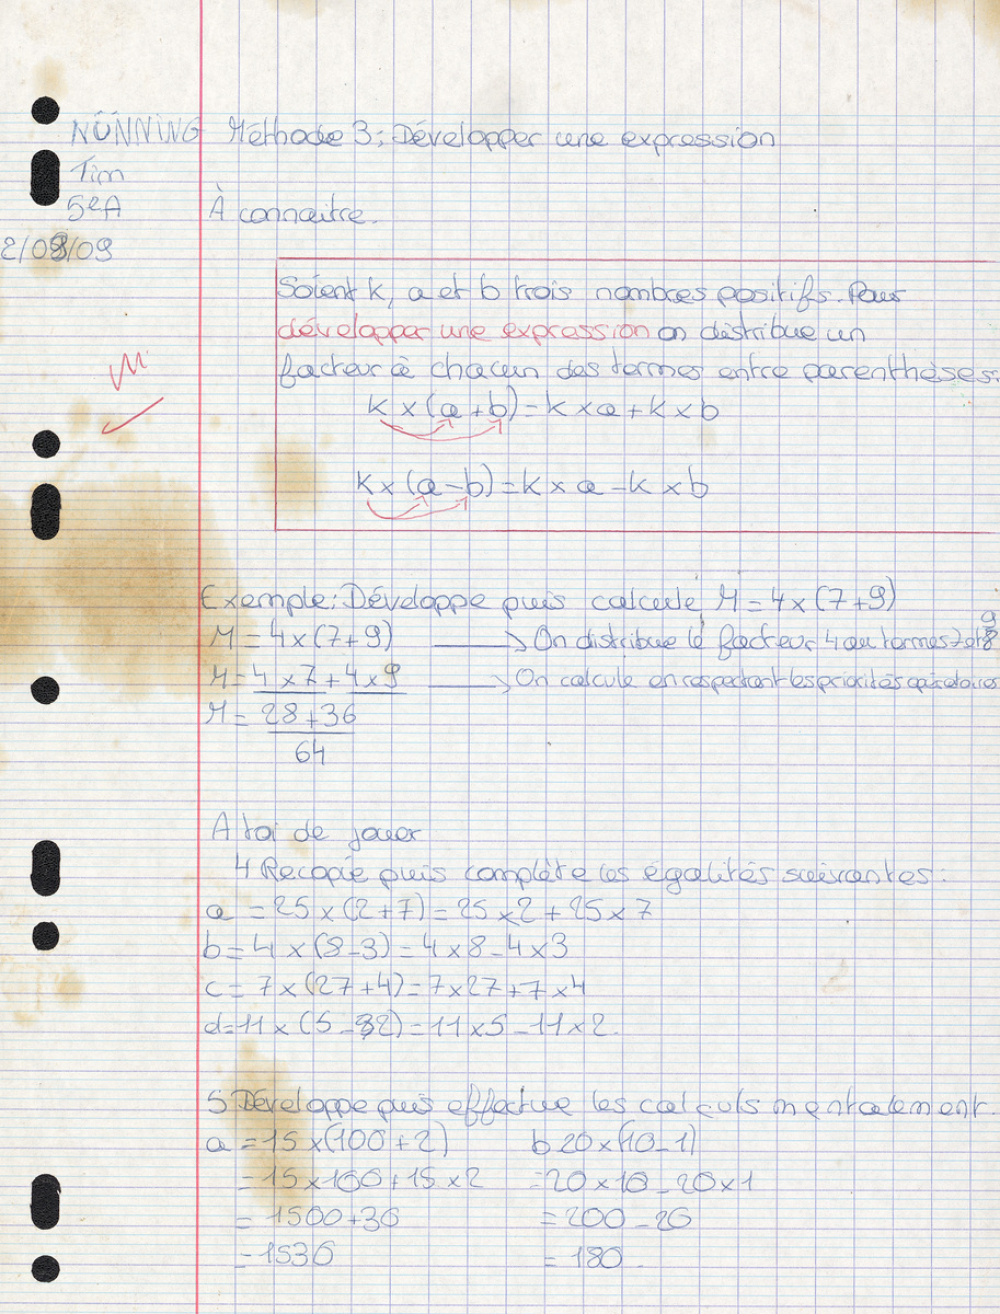 NÜNNING Méthode 3: Développer une expression
Tim
5eA À connaitre.
2/09/09
Soient k, a et b trois nombres positifs. Pour
développer une expression on distribue un
facteur à chacun des termes entre parenthèses:
k x (a + b) = k x a + k x b
k x (a - b) = k x a - k x b
Exemple: Développe puis calcule M = 4 x (7 + 9)
M = 4 x (7 + 9) → On distribue le facteur 4 au termes 7 et 9
M = 4 x 7 + 4 x 9 → On calcule en respectant les priorités opératoires
M = 28 + 36
64
A toi de jouer
4 Recopie puis complète les égalités suivantes:
a = 25 x (2 + 7) = 25 x 2 + 25 x 7
b = 4 x (8 - 3) = 4 x 8 - 4 x 3
c = 7 x (27 + 4) = 7 x 27 + 7 x 4
d = 11 x (5 - 2) = 11 x 5 - 11 x 2.
5 Développe puis effectue les calculs mentalement.
a = 15 x (100 + 2) b 20 x (10 - 1)
= 15 x 100 + 15 x 2 = 20 x 10 - 20 x 1
= 1500 + 30 = 200 - 20
= 1530 = 180.